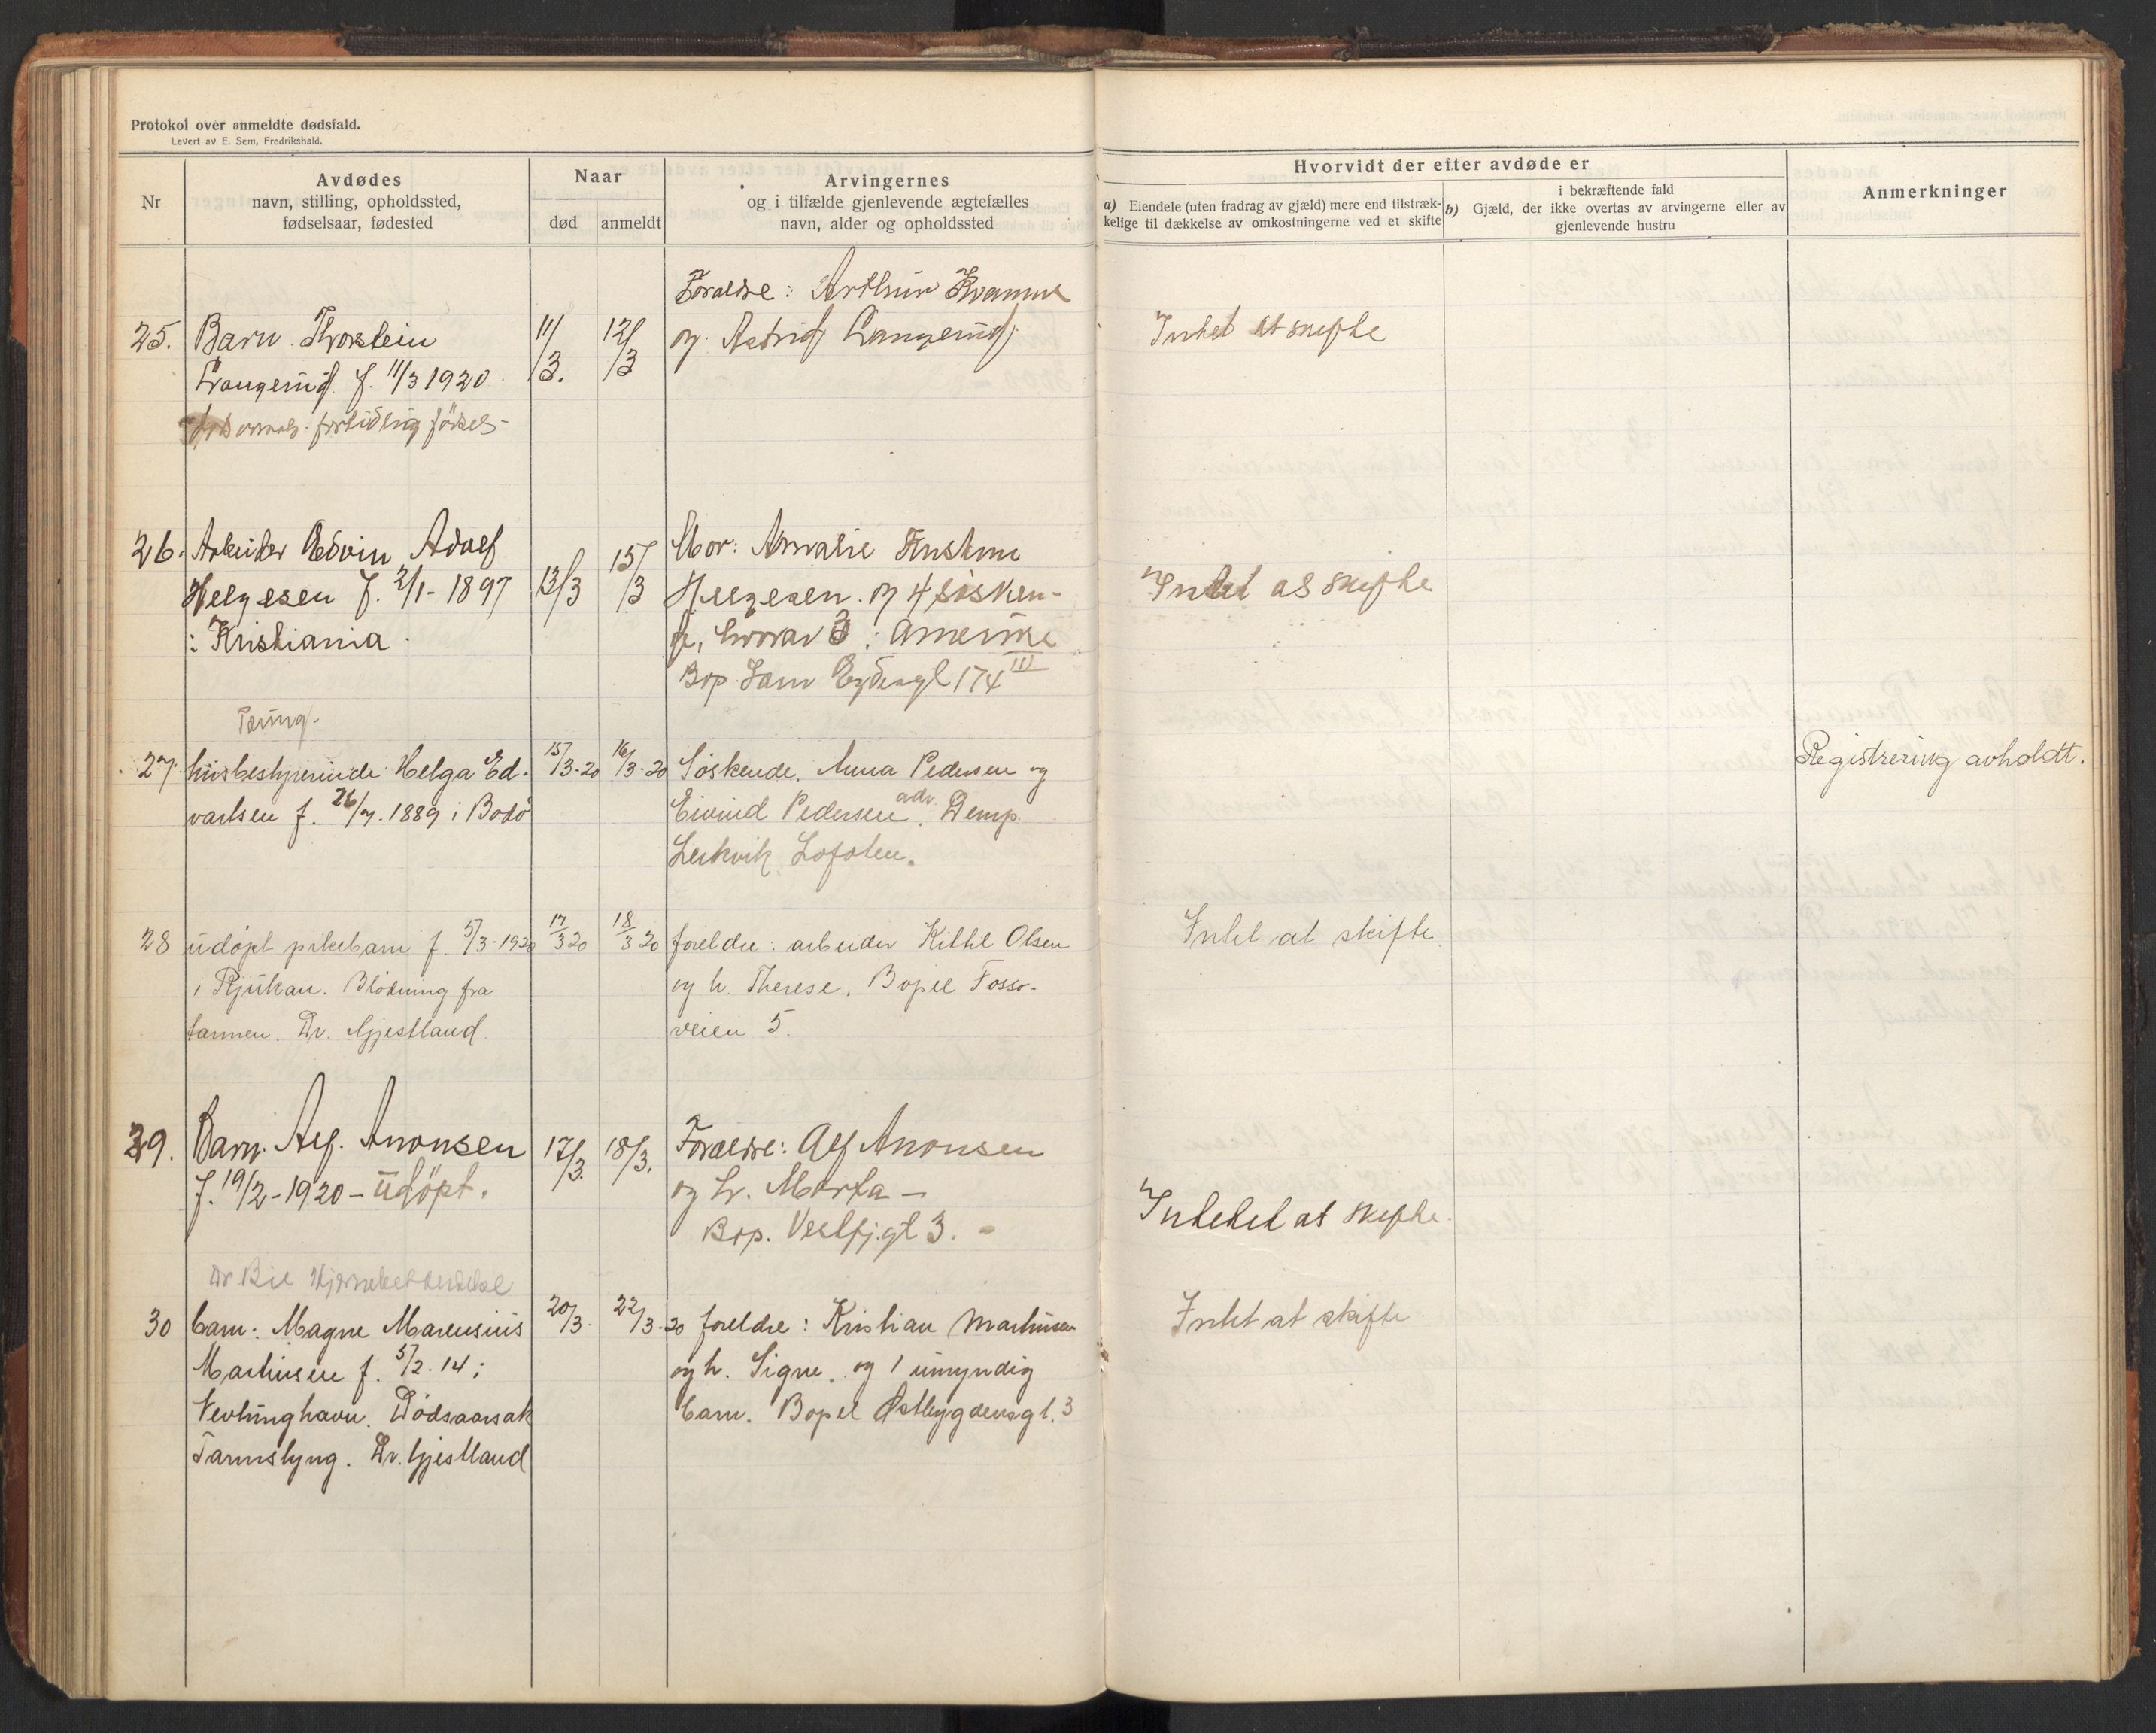 Protokol over anmeldte dødsfald.
Levert av E. Sem, Fredrikshald.
Nr
Avdødes
navn, stilling, opholdssted,
fødselsaar, fødested
Naar
død
anmeldt
Arvingernes
og i tilfælde gjenlevende ægtefælles
navn, alder og opholdssted
Hvorvidt der efter avdøde er
a) Eiendele (uten fradrag av gjæld) mere end tilstræk-
kelige til dækkelse av omkostningerne ved et skifte
i bekræftende fald
b) Gjæld, der ikke overtas av arvingerne eller av
gjenlevende hustru
Anmerkninger
Foraldre: Arthur
25. Barn Thorstein 11/3. 12/3 og Astrid Intet at skifte
f. 11/3 1920.
fortidlig fødsel-
26. Arbeider Edvin Adolf 13/3 15/3 Mor: Amalie
Helgesen f. 2/1-1897 Helgesen og 4 søsken- Intet at skifte
i Kristiania. de, hvorav 3 i Amerika
Bop. Sam Eydesgt 174 III
Tæring.
27. husbestyrerinde Helga Ed- 15/3-20 16/3-20 Søskende. Anna Pedersen og Registrering avholdt.
vartsen f. 26/7. 1889 i Bodø Eivind Pedersen adr.
Lofoten.
28 udøpt pikebarn f. 5/3-1920 17/3 20 18/3 20 foreldre: arbeider Kittil Olsen Intet at skifte
i Rjukan. Blødning fra og h. Therese. Bopel Fosso-
tarmen. Dr. Gjestland veien 5.
29. Barn. Alf. Aronsen 17/3. 18/3. Foraldre: Alf Aronsen
f. 19/2-1920 - udøpt. og h. Marta - Intetet at skifte.
Bop. Vestfj.gt 3. -
Dr. Bie Hjernebetendelse
30 barn: Magne Marensius 20/3. 22/3-20 foreldre: Kristian Martinsen Intet at skifte
Martinsen f. 5/2. 14 i og h. Signe. og 1 umyndig
Nevlunghavn. Dødsaarsak barn. Bopel Østbygdensgt. 3
Tarmslyng. Dr. Gjestland